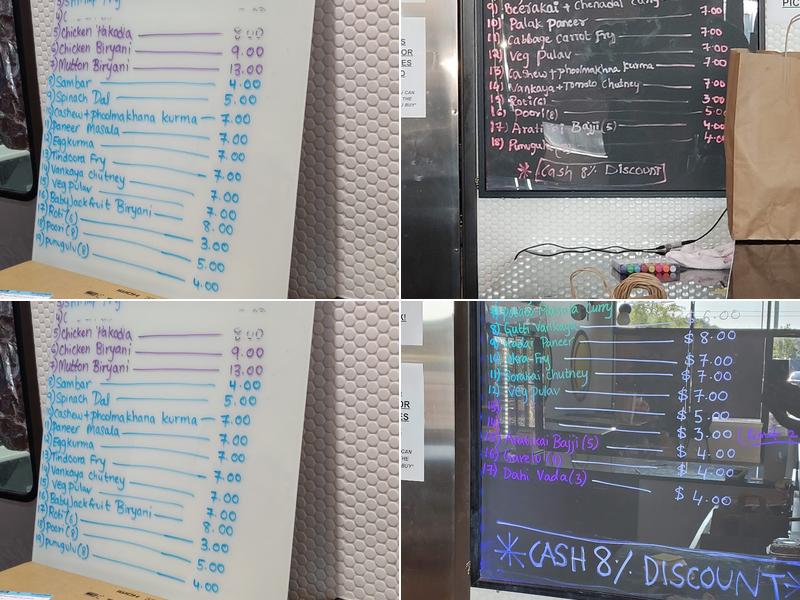 5) Chicken Pakodia 8.00
6) Chicken Biryani 9.00
7) Mutton Biryani 13.00
8) Sambar 4.00
9) Spinach Dal 5.00
10) Cashew + phoolmakhana kurma 7.00
11) Paneer Masala 7.00
12) Eggkurma 7.00
13) Tindoora Fry 7.00
14) Vankaya chutney 7.00
15) Veg pulav 7.00
16) Baby Jackfruit Biryani 8.00
17) Roti(6) 3.00
18) Poori(8) 5.00
19) punugulu(8) 4.00
9) Beerakai + Chenadal Curry 7.00
10) Palak Paneer 7.00
11) Cabbage Carrot Fry 7.00
12) Veg Pulav 7.00
13) Cashew + phoolmakhna kurma 7.00
14) Vankaya + Tomato Chutney 7.00
15) Roti(6) 3.00
16) Poori(8) 5.00
17) Arati Bajji(5) 4.00
18) 4.00
* Cash 8% Discount
5) Chicken Pakodia 8.00
6) Chicken Biryani 9.00
7) Mutton Biryani 13.00
8) Sambar 4.00
9) Spinach Dal 5.00
10) Cashew + phoolmakhana kurma 7.00
11) Paneer Masala 7.00
12) Eggkurma 7.00
13) Tindoora Fry 7.00
14) Vankaya chutney 7.00
15) Veg pulav 7.00
16) Baby Jackfruit Biryani 8.00
17) Roti(6) 3.00
18) Poori(8) 5.00
19) punugulu(8) 4.00
Masala Curry 6.00
8) Gutti Vankaya $ 8.00
9) Kadai Paneer $ 7.00
10) Okra-Fry $ 7.00
11) Sorakai Chutney $ 7.00
12) Veg Pulav $ 5.00
13) $ 3.00
14)
15) Aratikai Bajji(5) $ 4.00
16) Garelu $ 4.00
17) Dahi Vada(3) $ 4.00
* CASH 8% DISCOUNT *